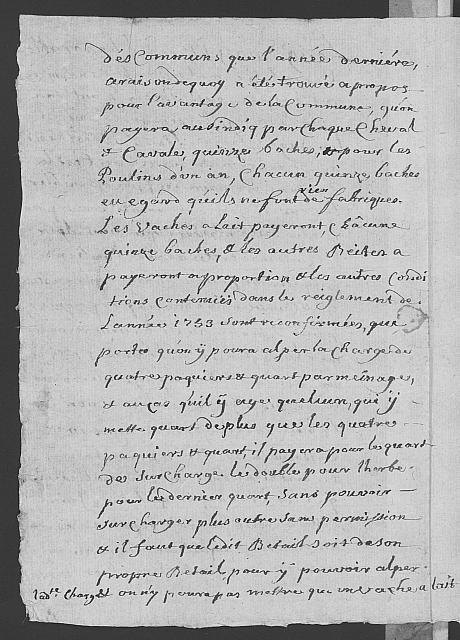 des Communs que l'année derniere,
a raison dequoy a été trouvé apropos
pour l'avantage de la Commune, quon
payera au sindiq par chaque Cheval
& Cavale quinze baches, & pour les
Poulins d'un an, Chacun quinze baches
en egard quils ne font rien de fabriques.
Les Vaches a lait payeront, Châcune
quinze baches, & les autres Bêtes a
payeront a proportion & les autres Condi
tions contenües dans le réiglement de
Lannée 1753 sont reconfirmées, que
porte quon ÿ poura alper la charge de
quatre paquiers & quart par ménage,
& au cas quil ÿ aye quelcun, qui ÿ
mette quart de plus que les quatre
paquiers & quart, il payera pour le quart
des surcharge le double pour lherbe
pour le dernier quart, sans pouvoir
surcharger plus autre sans permission
& il faut que ledit Betail soit de son
propre Betail pour ÿ pouvoir alper
Charge & on nÿ poura pas mettre que un vache a lait